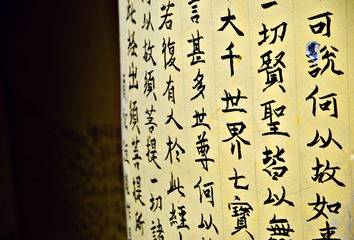 可說何以故如來
一切賢聖皆以無
大千世界七寶
言甚多世尊何以
若復有人於此經
何以故須菩提一切諸
此經出須菩提所